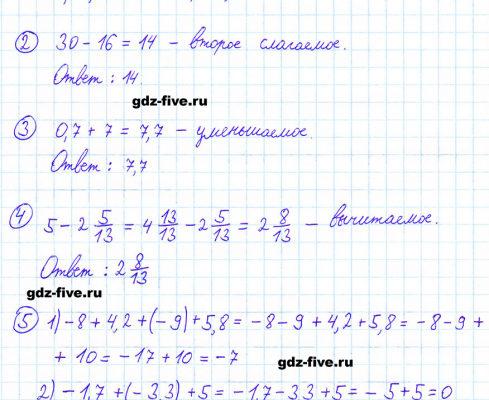 ② 30 - 16 = 14 - второе слагаемое.
Ответ: 14.
gdz-five.ru
③ 0,7 + 7 = 7,7 - уменьшаемое.
Ответ: 7,7
④ 5 - 2 5/13 = 4 13/13 - 2 5/13 = 2 8/13 - вычитаемое.
Ответ: 2 8/13
gdz-five.ru
⑤ 1) -8 + 4,2 + (-9) + 5,8 = -8 - 9 + 4,2 + 5,8 = -8 - 9 +
+ 10 = -17 + 10 = -7
gdz-five.ru
2) -1,7 + (-3,3) + 5 = -1,7 - 3,3 + 5 = -5 + 5 = 0